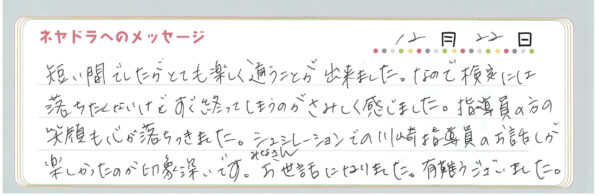 ネヤドラへのメッセージ
12月22日
短い間でしたがとても楽しく通うことが出来ました。なので検定には
落ちたくないけどすぐ終ってしまうのがさみしく感じました。指導員の方の
笑顔も心が落ちつきました。シュミレーションでの川崎指導員のお話しが
楽しかったのが印象深いです。みなさんお世話になりました。有難うございました。